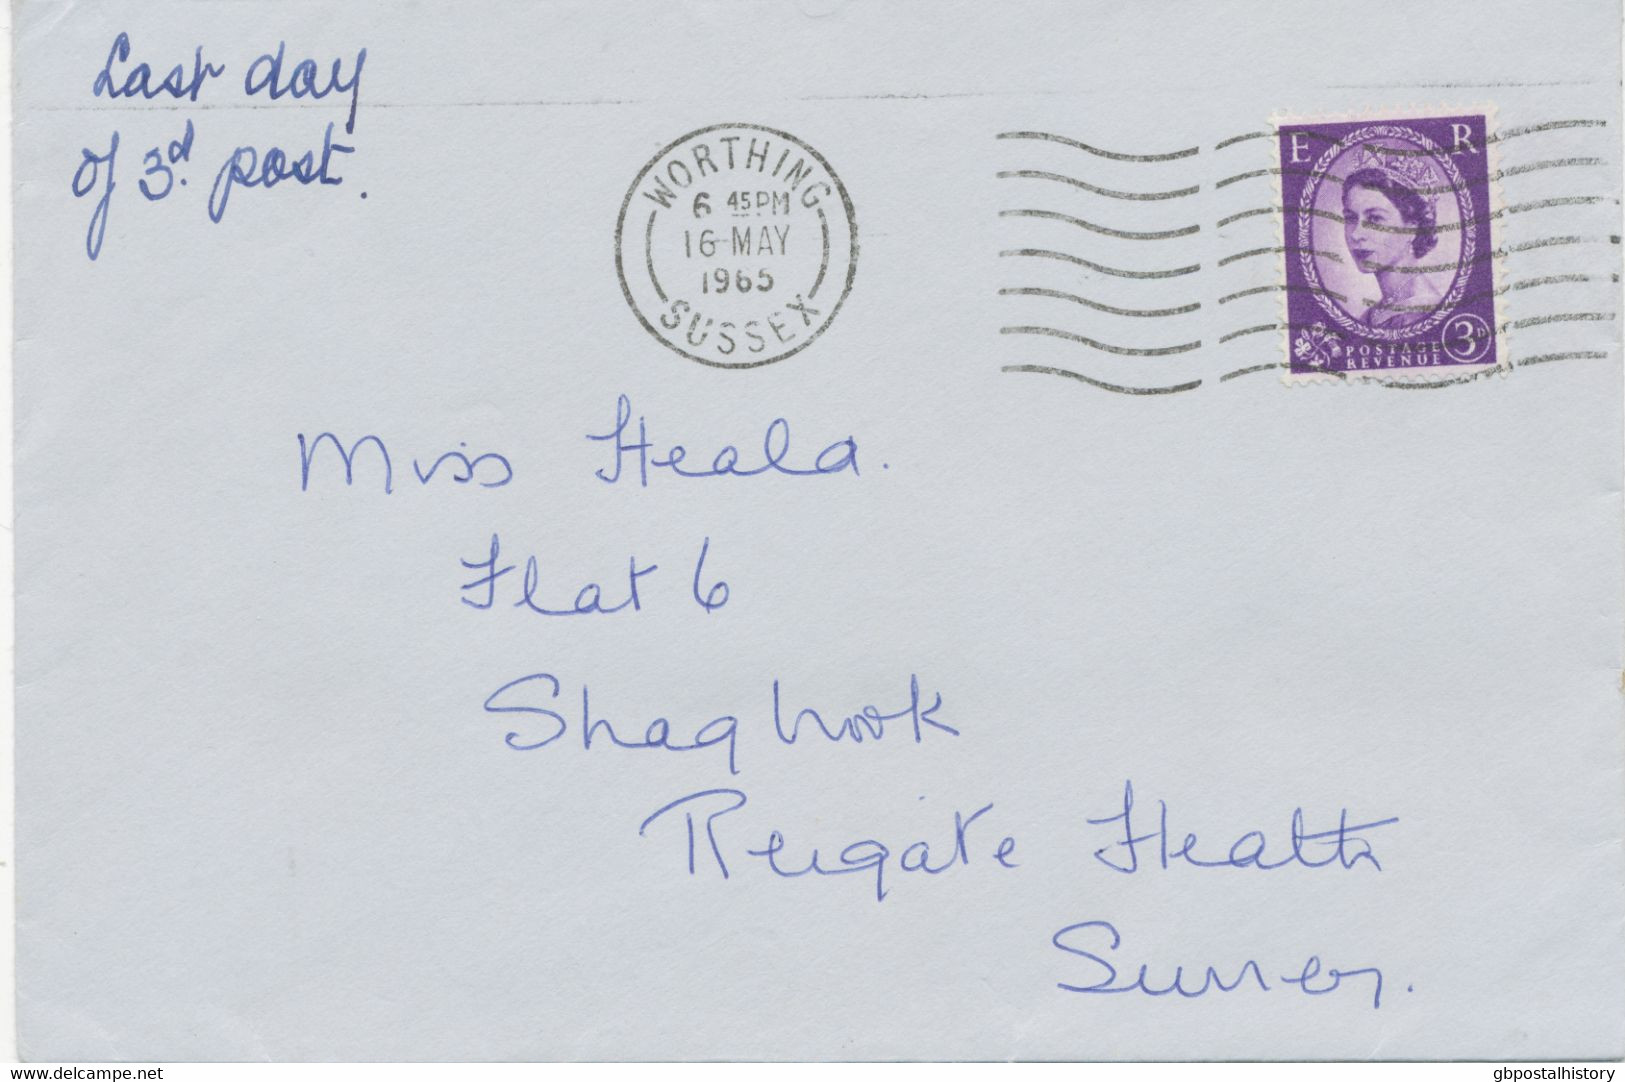 Last day
of 3d. post.
WORTHING
6 45PM
16 MAY
1965
SUSSEX
E R
POSTAGE
REVENUE
3D
Miss Heald.
Flat 6
Shaghook
Reigate Heath
Surrey.
delcampe.net
gbpostalhistory